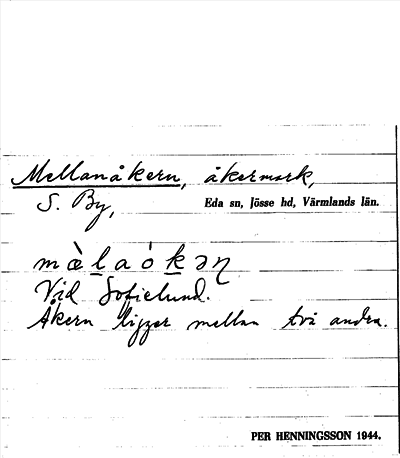 Mellanåkern, åkermark,
S. By, Eda sn, Jösse hd, Värmlands län.
mæ̀laókəɳ
Vid Sofielund.
Åkern ligger mellan två andra.
PER HENNINGSSON 1944.